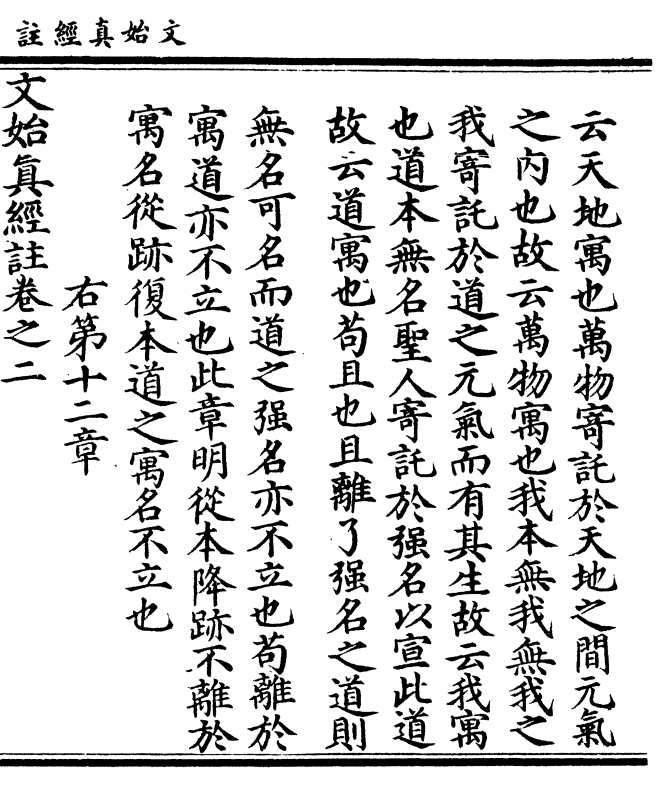 文始真經註
云天地寓也萬物寄託於天地之間元氣
之內也故云萬物寓也我本無我無我之
我寄託於道之元氣而有其生故云我寓
也道本無名聖人寄託於强名以宣此道
故云道寓也苟且也且離了强名之道則
無名可名而道之强名亦不立也苟離於
寓道亦不立也此章明從本降跡不離於
寓名從跡復本道之寓名不立也
右第十二章
文始真經註卷之二